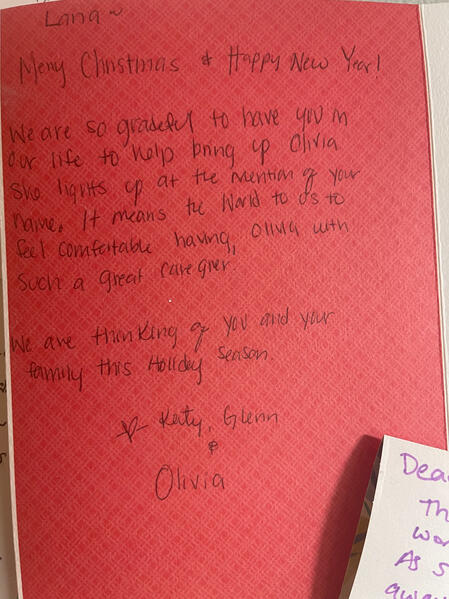 Lana ~
Merry Christmas & Happy New Year!
We are so grateful to have you in
our life to help bring up Olivia
She lights up at the mention of your
name. It means the World to us to
feel comfortable having, Olivia with
Such a great caregiver.
We are thinking of you and your
family this Holiday Season.
Katy, Glenn
&
Olivia
Dea
Th
wor
As s
away